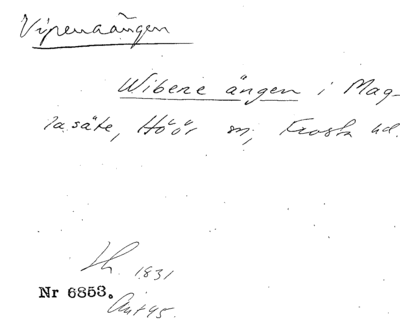 Vipenaängen
Wibene ängen i Mag-
lasäte, Höör sn, Frosta hd.
Lh. 1831
Nr 6853.
Ant 45.